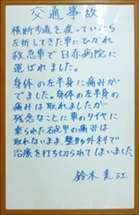 交通事故
横断歩道を渡っていたら
左折してきた車にひかれ
救急車で日赤病院に
運ばれました。
身体の左半身に痛みが
でました。身体の左半身の
痛みは取れましたが
残念なことに車のタイヤに
乗られた右足甲の痛みは
取れないまま、整形外科で
治療を打ち切られてしまいました。
鈴木美江